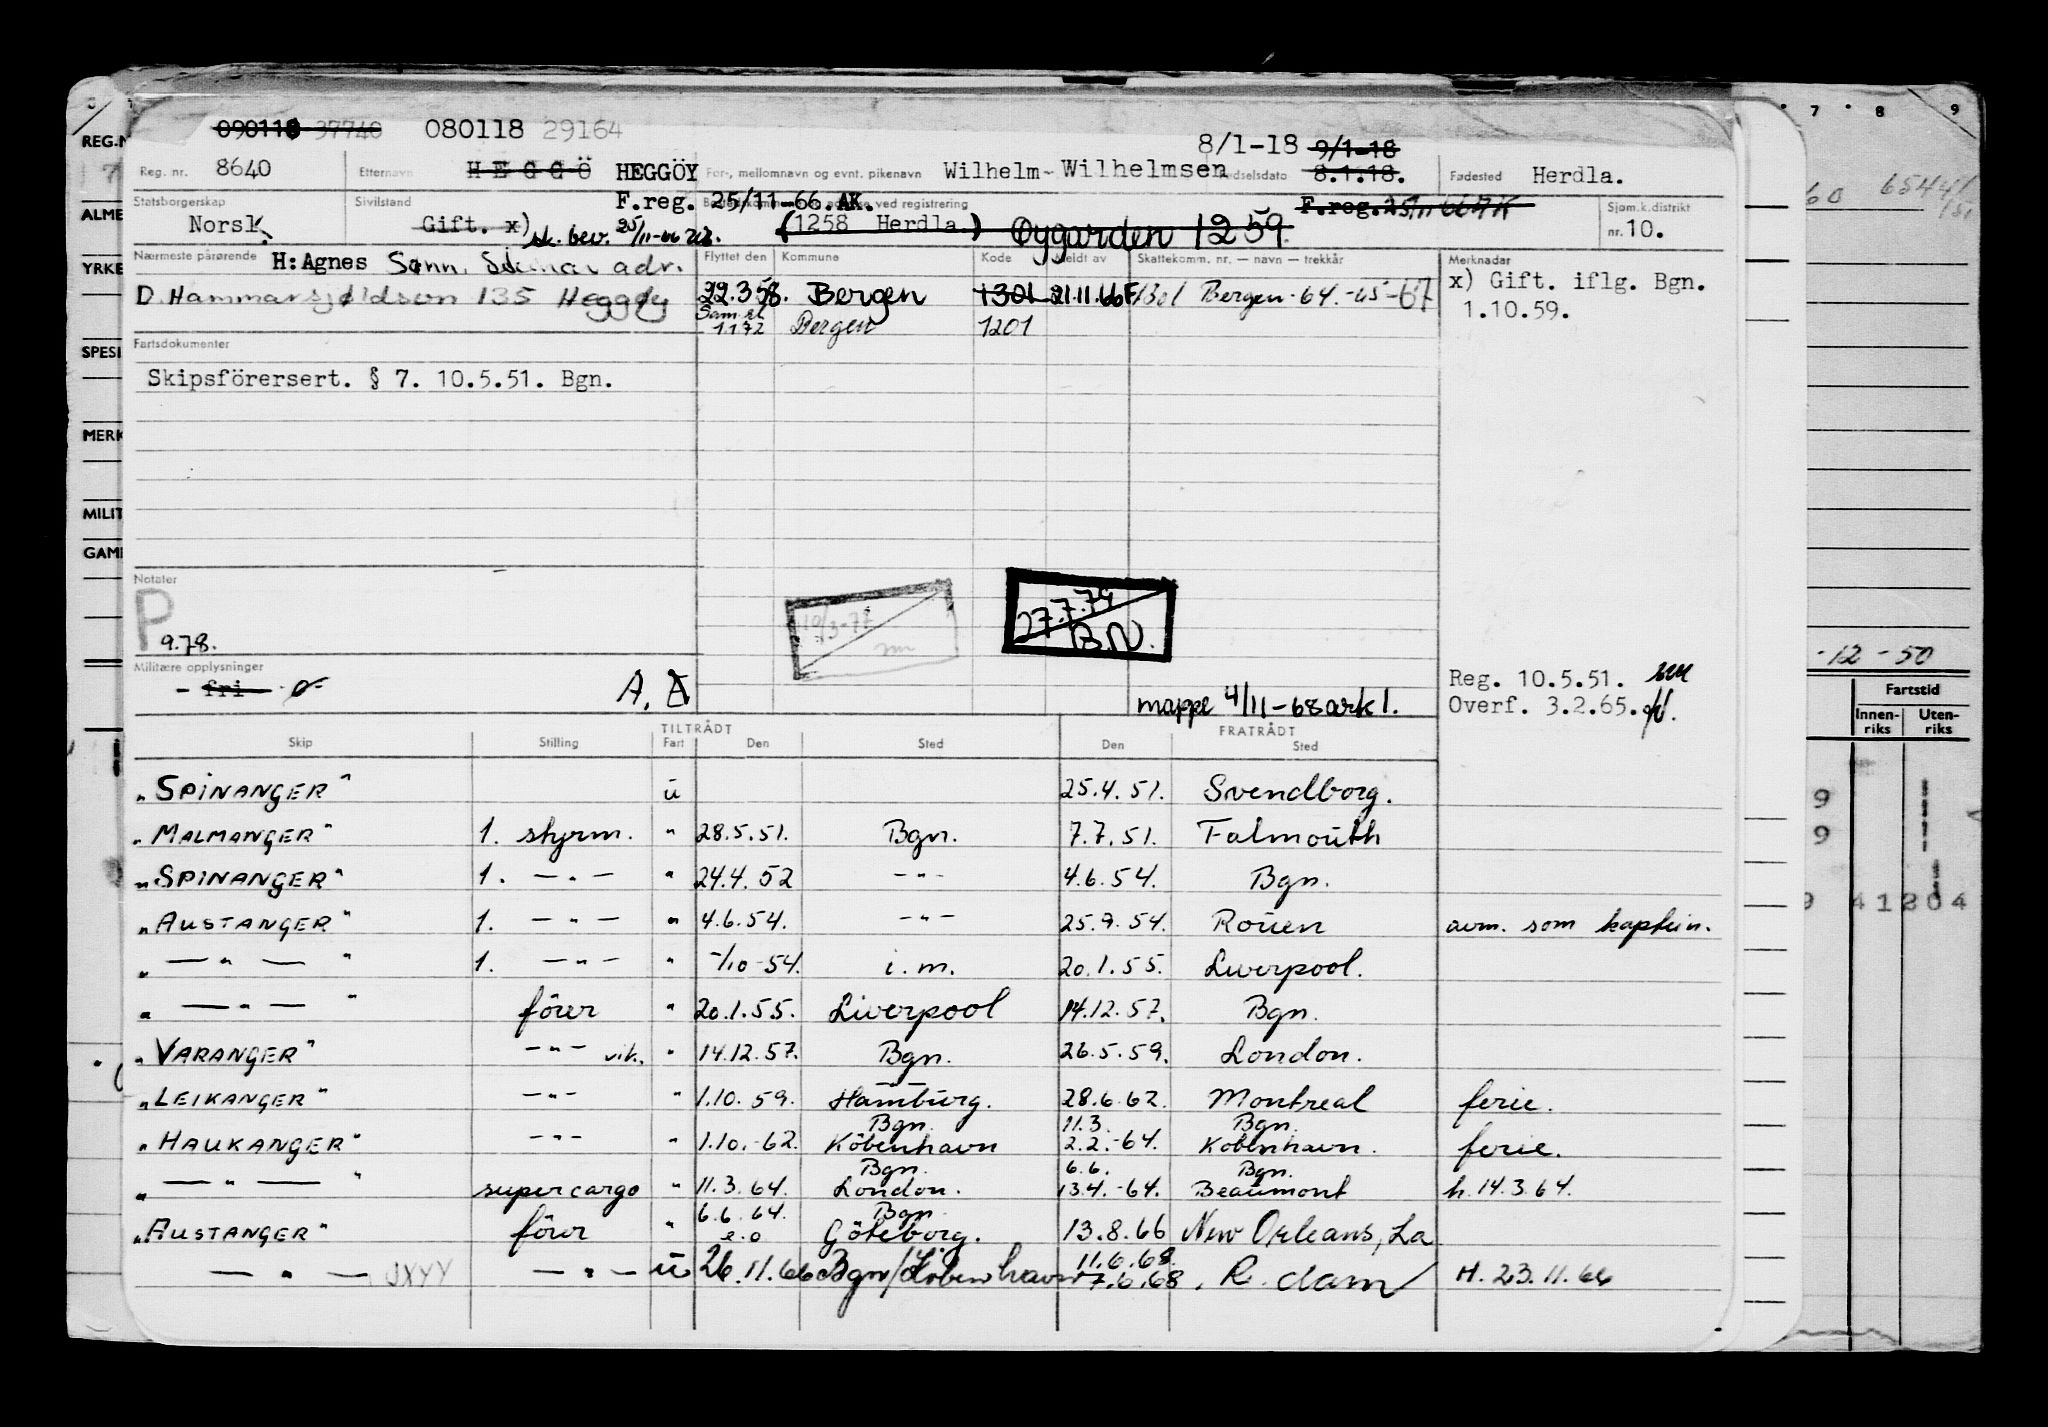 090118 37740 080118 29164
8/1-18 9/1-18
Reg. nr. 8640 Etternavn HEGGÖ HEGGÖY For-, mellomnavn og evnt. pikenavn Wilhelm Wilhelmsen Fødselsdato 8.1.18. Fødested Herdla.
Statsborgerskap Norsk. Sivilstand Gift. x) F.reg. 25/11-66.AK. ved registrering (1258 Herdla.) Øygarden 1259. F.reg. 25/11 66 AK Sjøm.k.distrikt nr. 10.
sk. bev. 25/11-66
Nærmeste pårørende H:Agnes Samme adr. Flyttet den Kommune Kode Meldt av Skattekomm. nr. — navn — trekkår Merknadar
D. Hammarsjøldsvn 135 Heggøy 22.3.58. Bergen 1301 21.11.66 F 1301 Bergen-64.-65-67 x) Gift. iflg. Bgn.
1172 Bergen 1201 1.10.59.
Fartsdokumenter
Skipsförersert. § 7. 10.5.51. Bgn.
Notater
P
9.78.
10/3-77
27.7.79
B.N.
Militære opplysninger
- fri -
A. A
mappe 4/11-68 ark 1.
Reg. 10.5.51.
Overf. 3.2.65.
TILTRÅDT FRATRÅDT
Skip Stilling Fart Den Sted Den Sted
"SPINANGER" u 25.4.51. Svendborg.
"MALMANGER" 1. styrm. " 28.5.51. Bgn. 7.7.51. Falmouth
"SPINANGER" 1. —"— " 24.4.52 —"— 4.6.54. Bgn.
"AUSTANGER" 1. —"— " 4.6.54. —"— 25.9.54. Rouen avm. som kaptein.
" —"— " 1. —"— " -/10-54. i.m. 20.1.55. Liverpool.
" —"— " förer " 20.1.55. Liverpool 14.12.57. Bgn.
"VARANGER" —"— vik. " 14.12.57. Bgn. 26.5.59. London.
"LEIKANGER" —"— " 1.10.59. Hamburg. 28.6.62. Montreal ferie.
Bgn. 11.3. Bgn.
"HAUKANGER" —"— " 1.10.-62. Köbenhavn 2.2.-64. Köbenhavn. ferie.
Bgn. 6.6. Bgn.
" —"— " supercargo " 11.3.64. London. 13.4.-64. Beaumont h. 14.3.64.
6.6.64. Bgn.
"AUSTANGER" förer " e.o Göteborg. 13.8.66 New Orleans, La
11.6.68.
—"— JXYY —"— u 26.11.66 Bgn/Köbenhavn 7.6.68. R.dam H. 23.11.66
REG.N
ALME
YRKE
SPESI
MERK
MILIT
GAM
7 8 9
60 65441
-12-50
Fartstid
Innen-riks Uten-riks
9
9
9 41204